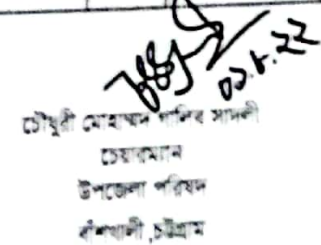 ০১.৮.২২
চৌধুরী মোহাম্মদ গালিব সাদলী
চেয়ারম্যান
উপজেলা পরিষদ
বাঁশখালী, চট্টগ্রাম